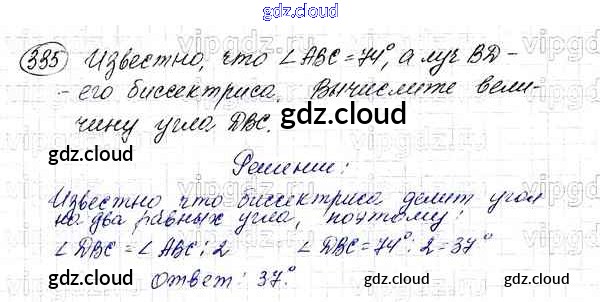 gdz.cloud
335 Известно, что ∠ABC=74°, а луч BD -
- его биссектриса. Вычислите вели-
чину угла DBC.
gdz.cloud
gdz.cloud
Решение:
Известно что биссектриса делит угол
на два равных угла, поэтому:
∠DBC=∠ABC:2 ∠DBC=74°:2=37°
Ответ: 37°
gdz.cloud
gdz.cloud